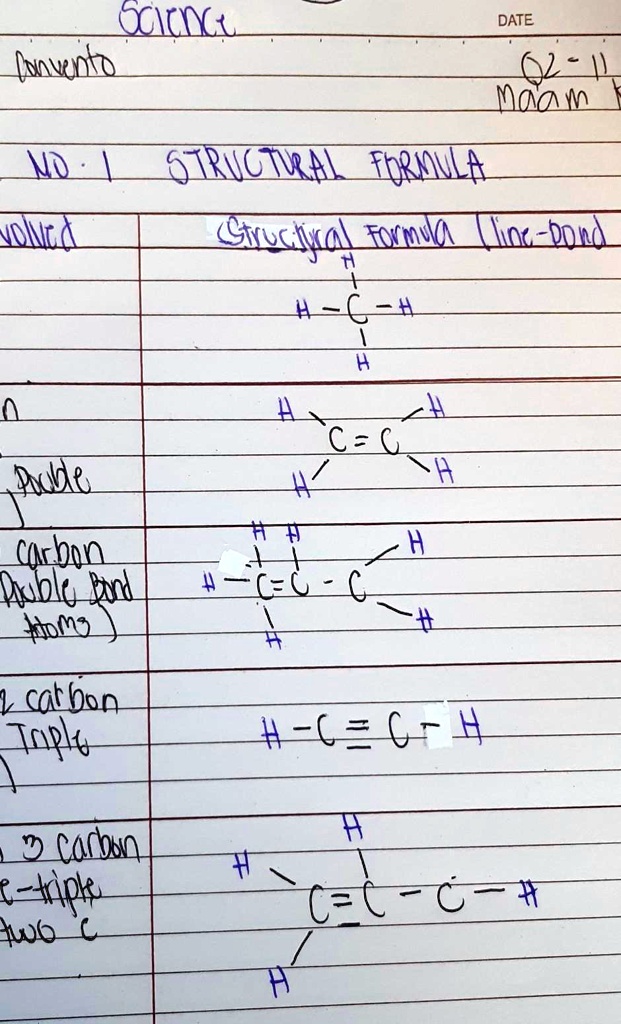 Science
DATE
Convento
Q2 - 11
Maam
NO. 1 STRUCTURAL FORMULA
volved
Structural Formula (line-bond
H
H - C - H
H
n
H H
C = C
Double
)
H H
carbon
Double Bond
Atoms)
H H H
H - C = C - C
H H
2 carbon
Triple
)
H - C ≡ C - H
3 carbon
e-triple
two C
H
H
C ≡ C - C - H
H